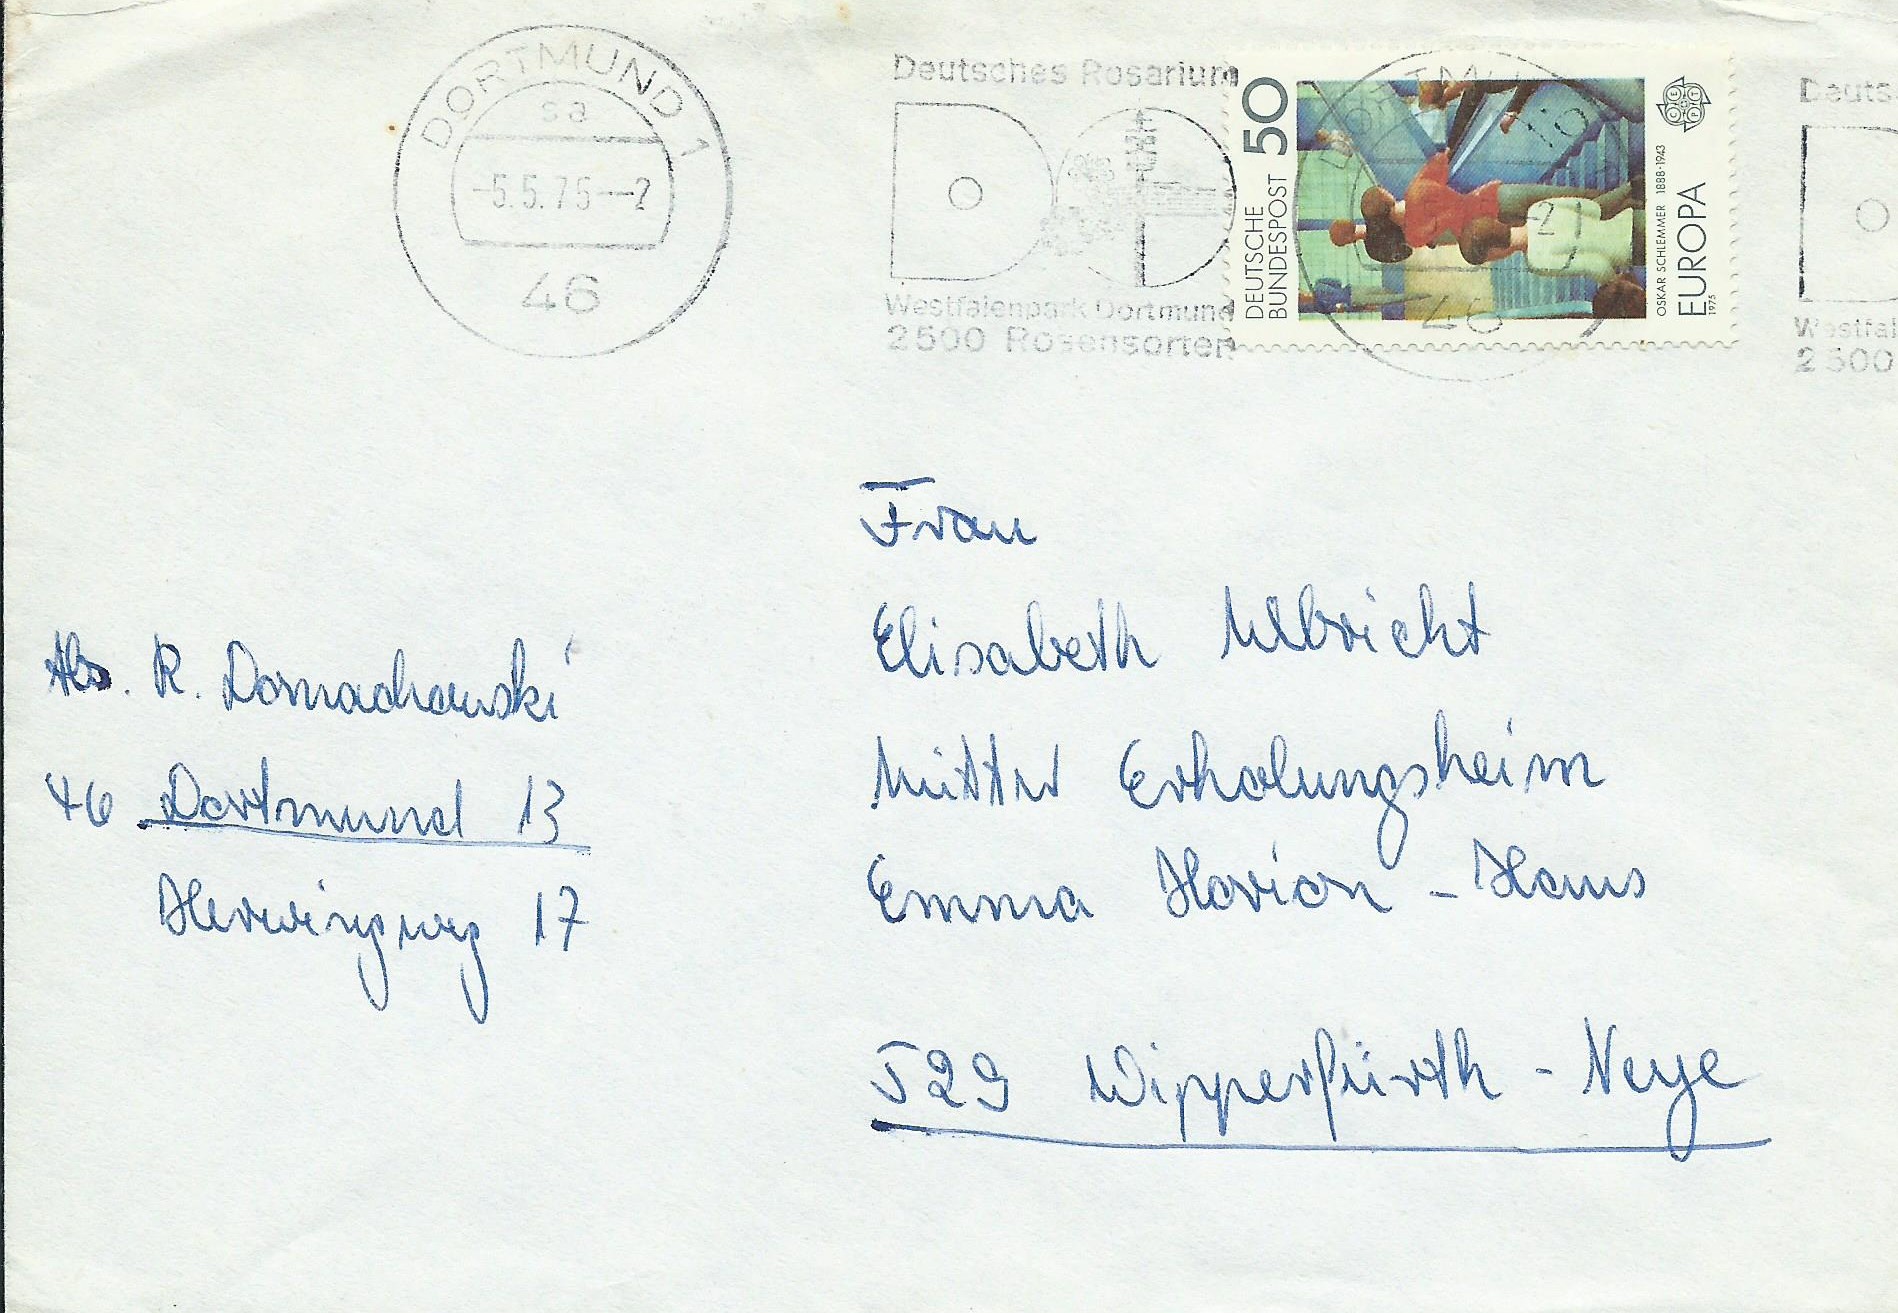 DORTMUND 1
sa
-5.5.75--2
46
Deutsches Rosarium
Westfalenpark Dortmund
2500 Rosensorten
DEUTSCHE
BUNDESPOST 50
OSKAR SCHLEMMER 1888-1943
EUROPA
1975
CEPT
46
Deuts
Westfal
2500
Frau
Elisabeth Ulbricht
Mütter Erholungsheim
Emma Horion - Haus
529 Wipperfürth - Neye
Abs. R. Domachowski
46 Dortmund 13
17